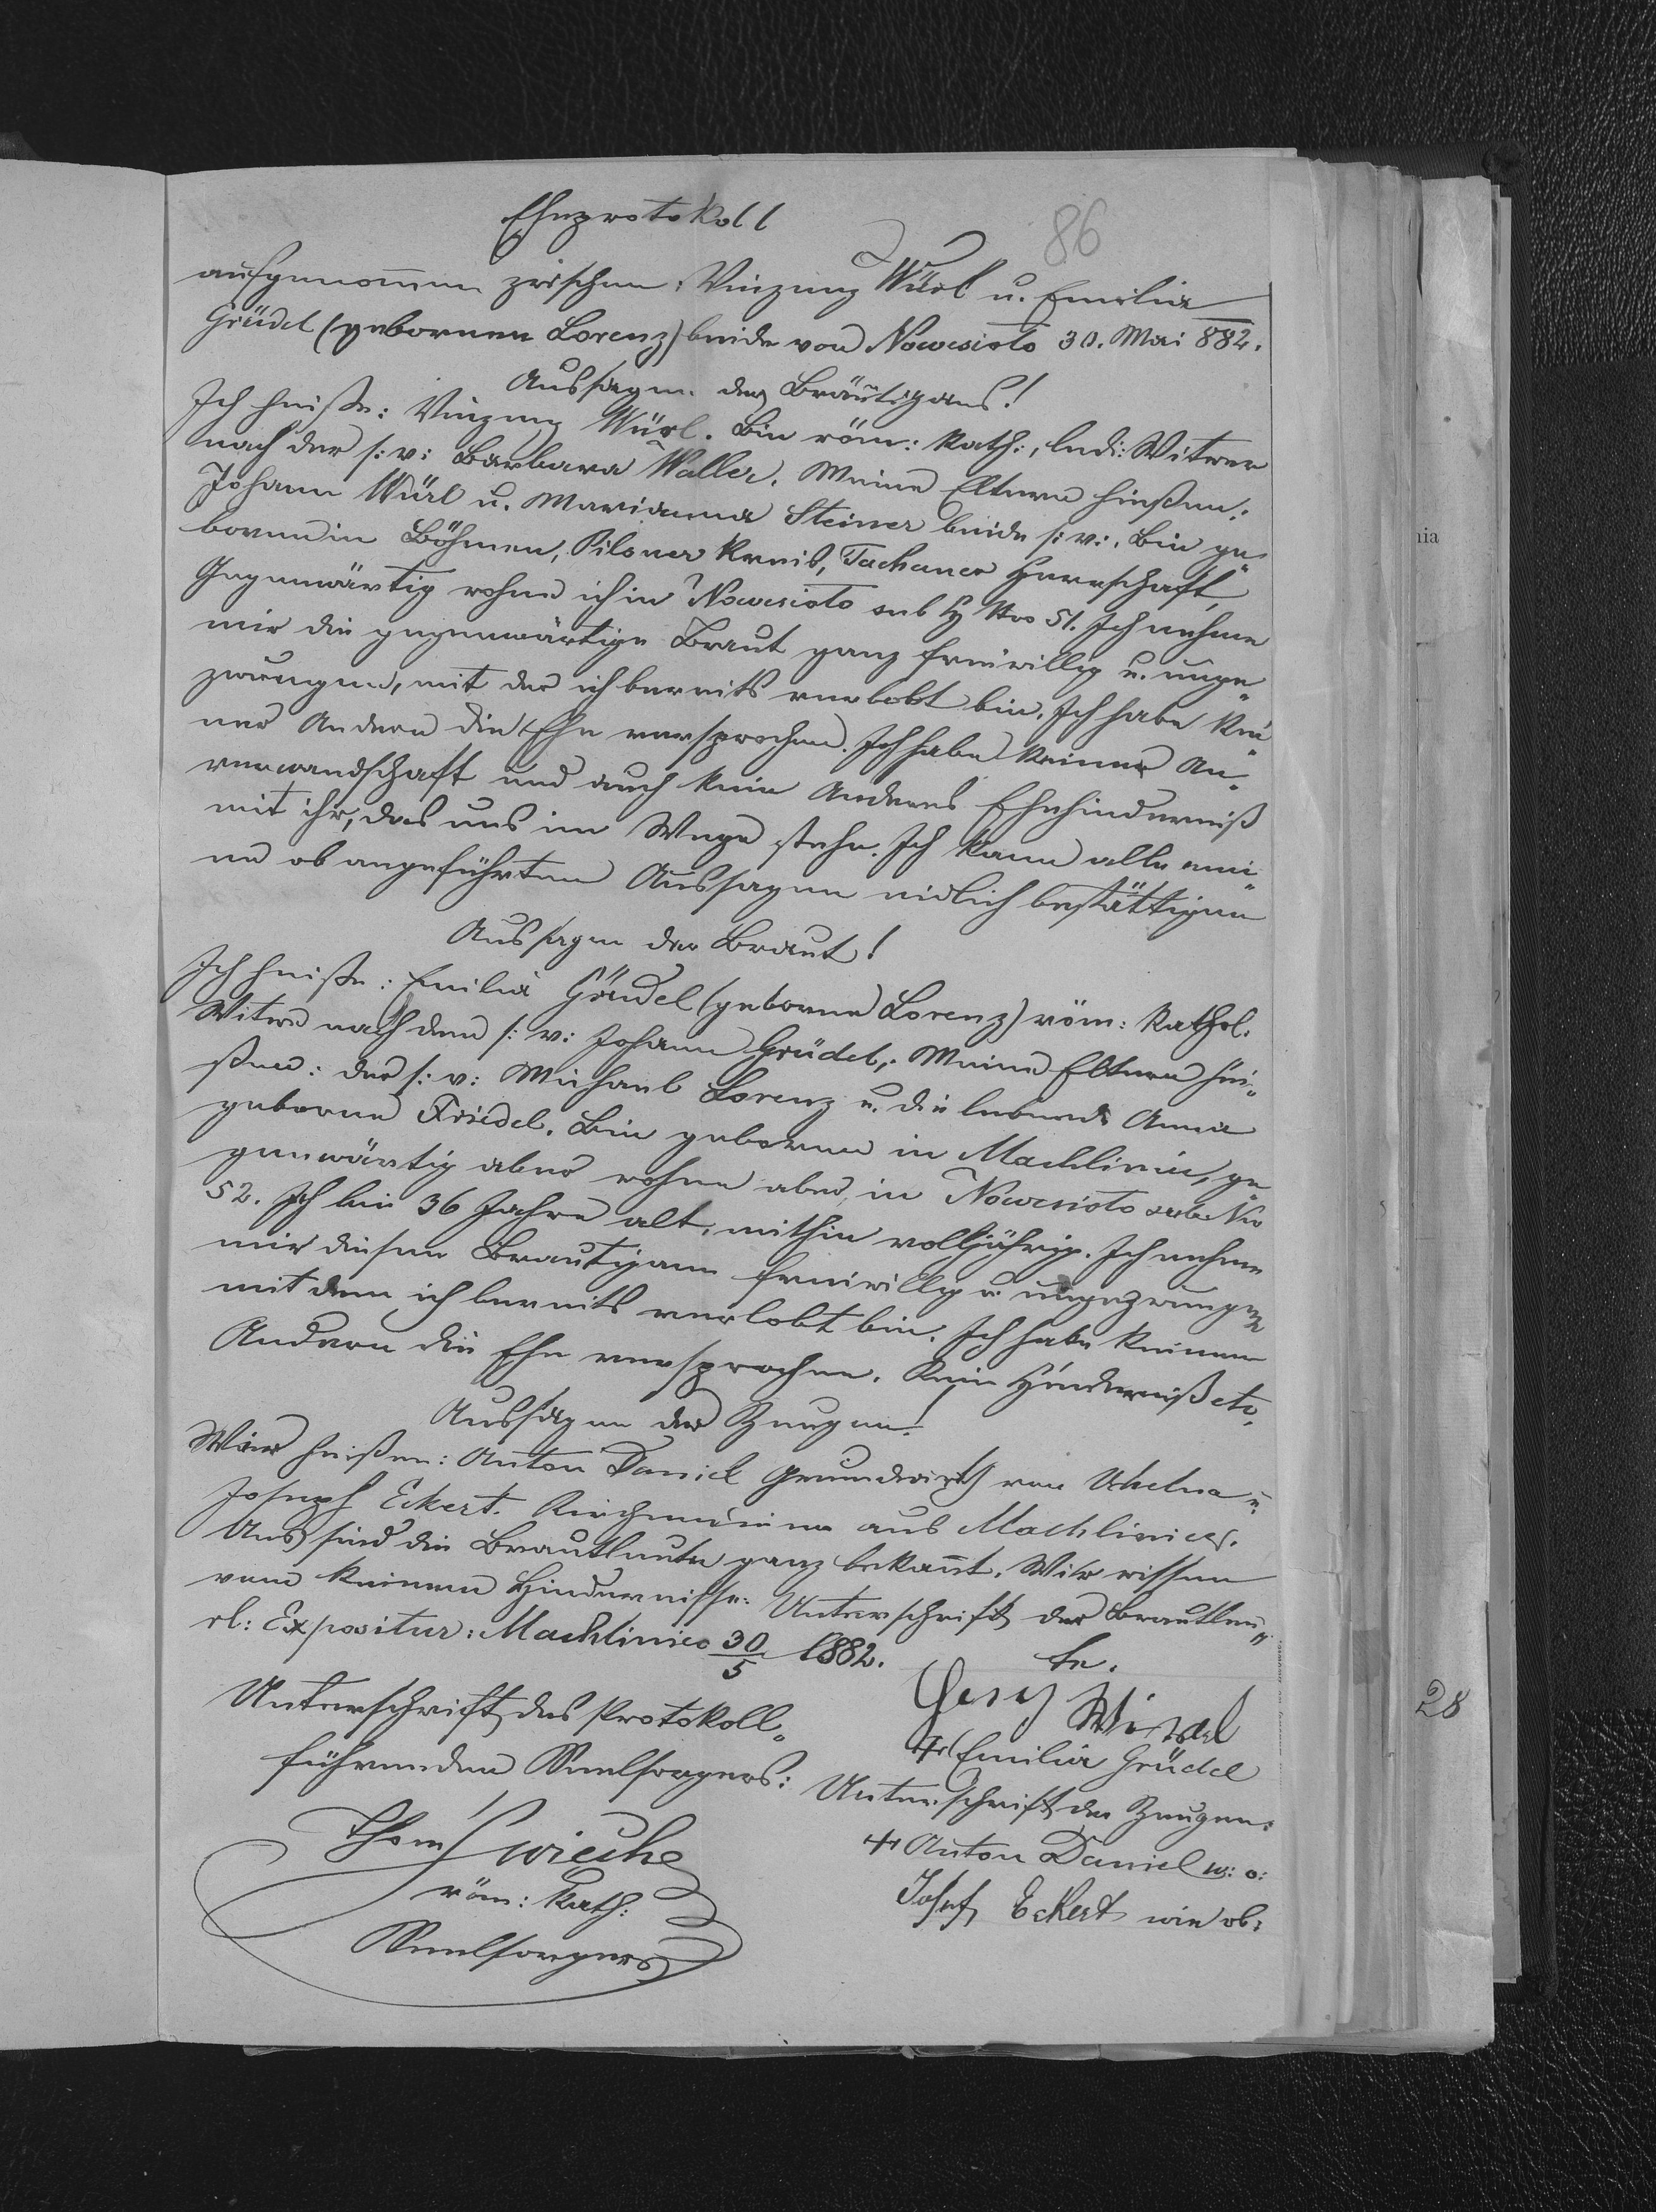 Eheprotokoll
86
aufgenom̅en zwischen: Vinzenz Würl u. Emilia
Gründel (gebornen Lorenz) beide von Nowesioło 30. Mai 882.
Aussagen des Bräutigams!
Ich heiße: Vinzenz Würl. Bin röm: Kath:, led: Witwer
nach der s: v: Barbara Waller. Meine Eltern hießen:
Johann Würl u. Marianna Steiner beide s: v:. Bin ge„
boren in Böhmen, Pilsner Kreis, Tachauer Herrschaft,
Gegenwärtig wohne ich in Nowesioło sub H Nro 51. Ich nehme
mir die gegenwärtige Braut ganz freiwillig u. unge„
zwungen, mit der ich bereits verlobt bin. Ich habe kei„
ner Andern die Ehe versprochen. Ich habe keiner An„
verwandschaft und auch kein Anderes Ehehinderniß
mit ihr, das uns im Wege stehe. Ich kann alle mei„
ne ob angeführten Aussagen eidlich bestättigen
Aussagen der Braut!
Ich heiße: Emilia Gründel (geborne Lorenz) röm: Kathol:
Witwe nach dem s: v: Johann Gründel,. Meine Eltern hie„
ßen: der s: v: Michael Lorenz u. die lebende Anna
geborne Friedel. Bin geboren in Machliniec, ge„
genwärtig aber wohne aber in Nowesioło sub Nro
52. Ich bin 36 Jahre alt, mithin volljährig. Ich nehme
mir diesen Brautigam freiwillig u. ungezwungen
mit dem ich bereits verlobt bin. Ich habe keinem
Andern die Ehe versprochen. Kein Hinderniß etc.
Aussagen der Zeugen!
Wir heißen: Anton Daniel Grundwirth von Uhelna u.
Joseph Eckert. Kirchendiener aus Machliniec.
Uns sind die Brautleute ganz bekan̅t. Wir wissen
vom keinem Hindernisse. Unterschrift der Brautleu„
rl: Expositur: Machliniec 30/5 1882.
te.
Unterschrift des Protokoll„
führenden Seelsorgers:
Wirzel
+ Emilia Gründel
Unterschrift der Zeugen.
Thom Ćwieche
+ Anton Daniel w: o:
röm: Kath:
Josef Eckert wie ob:
Seelsorgers
nia
28